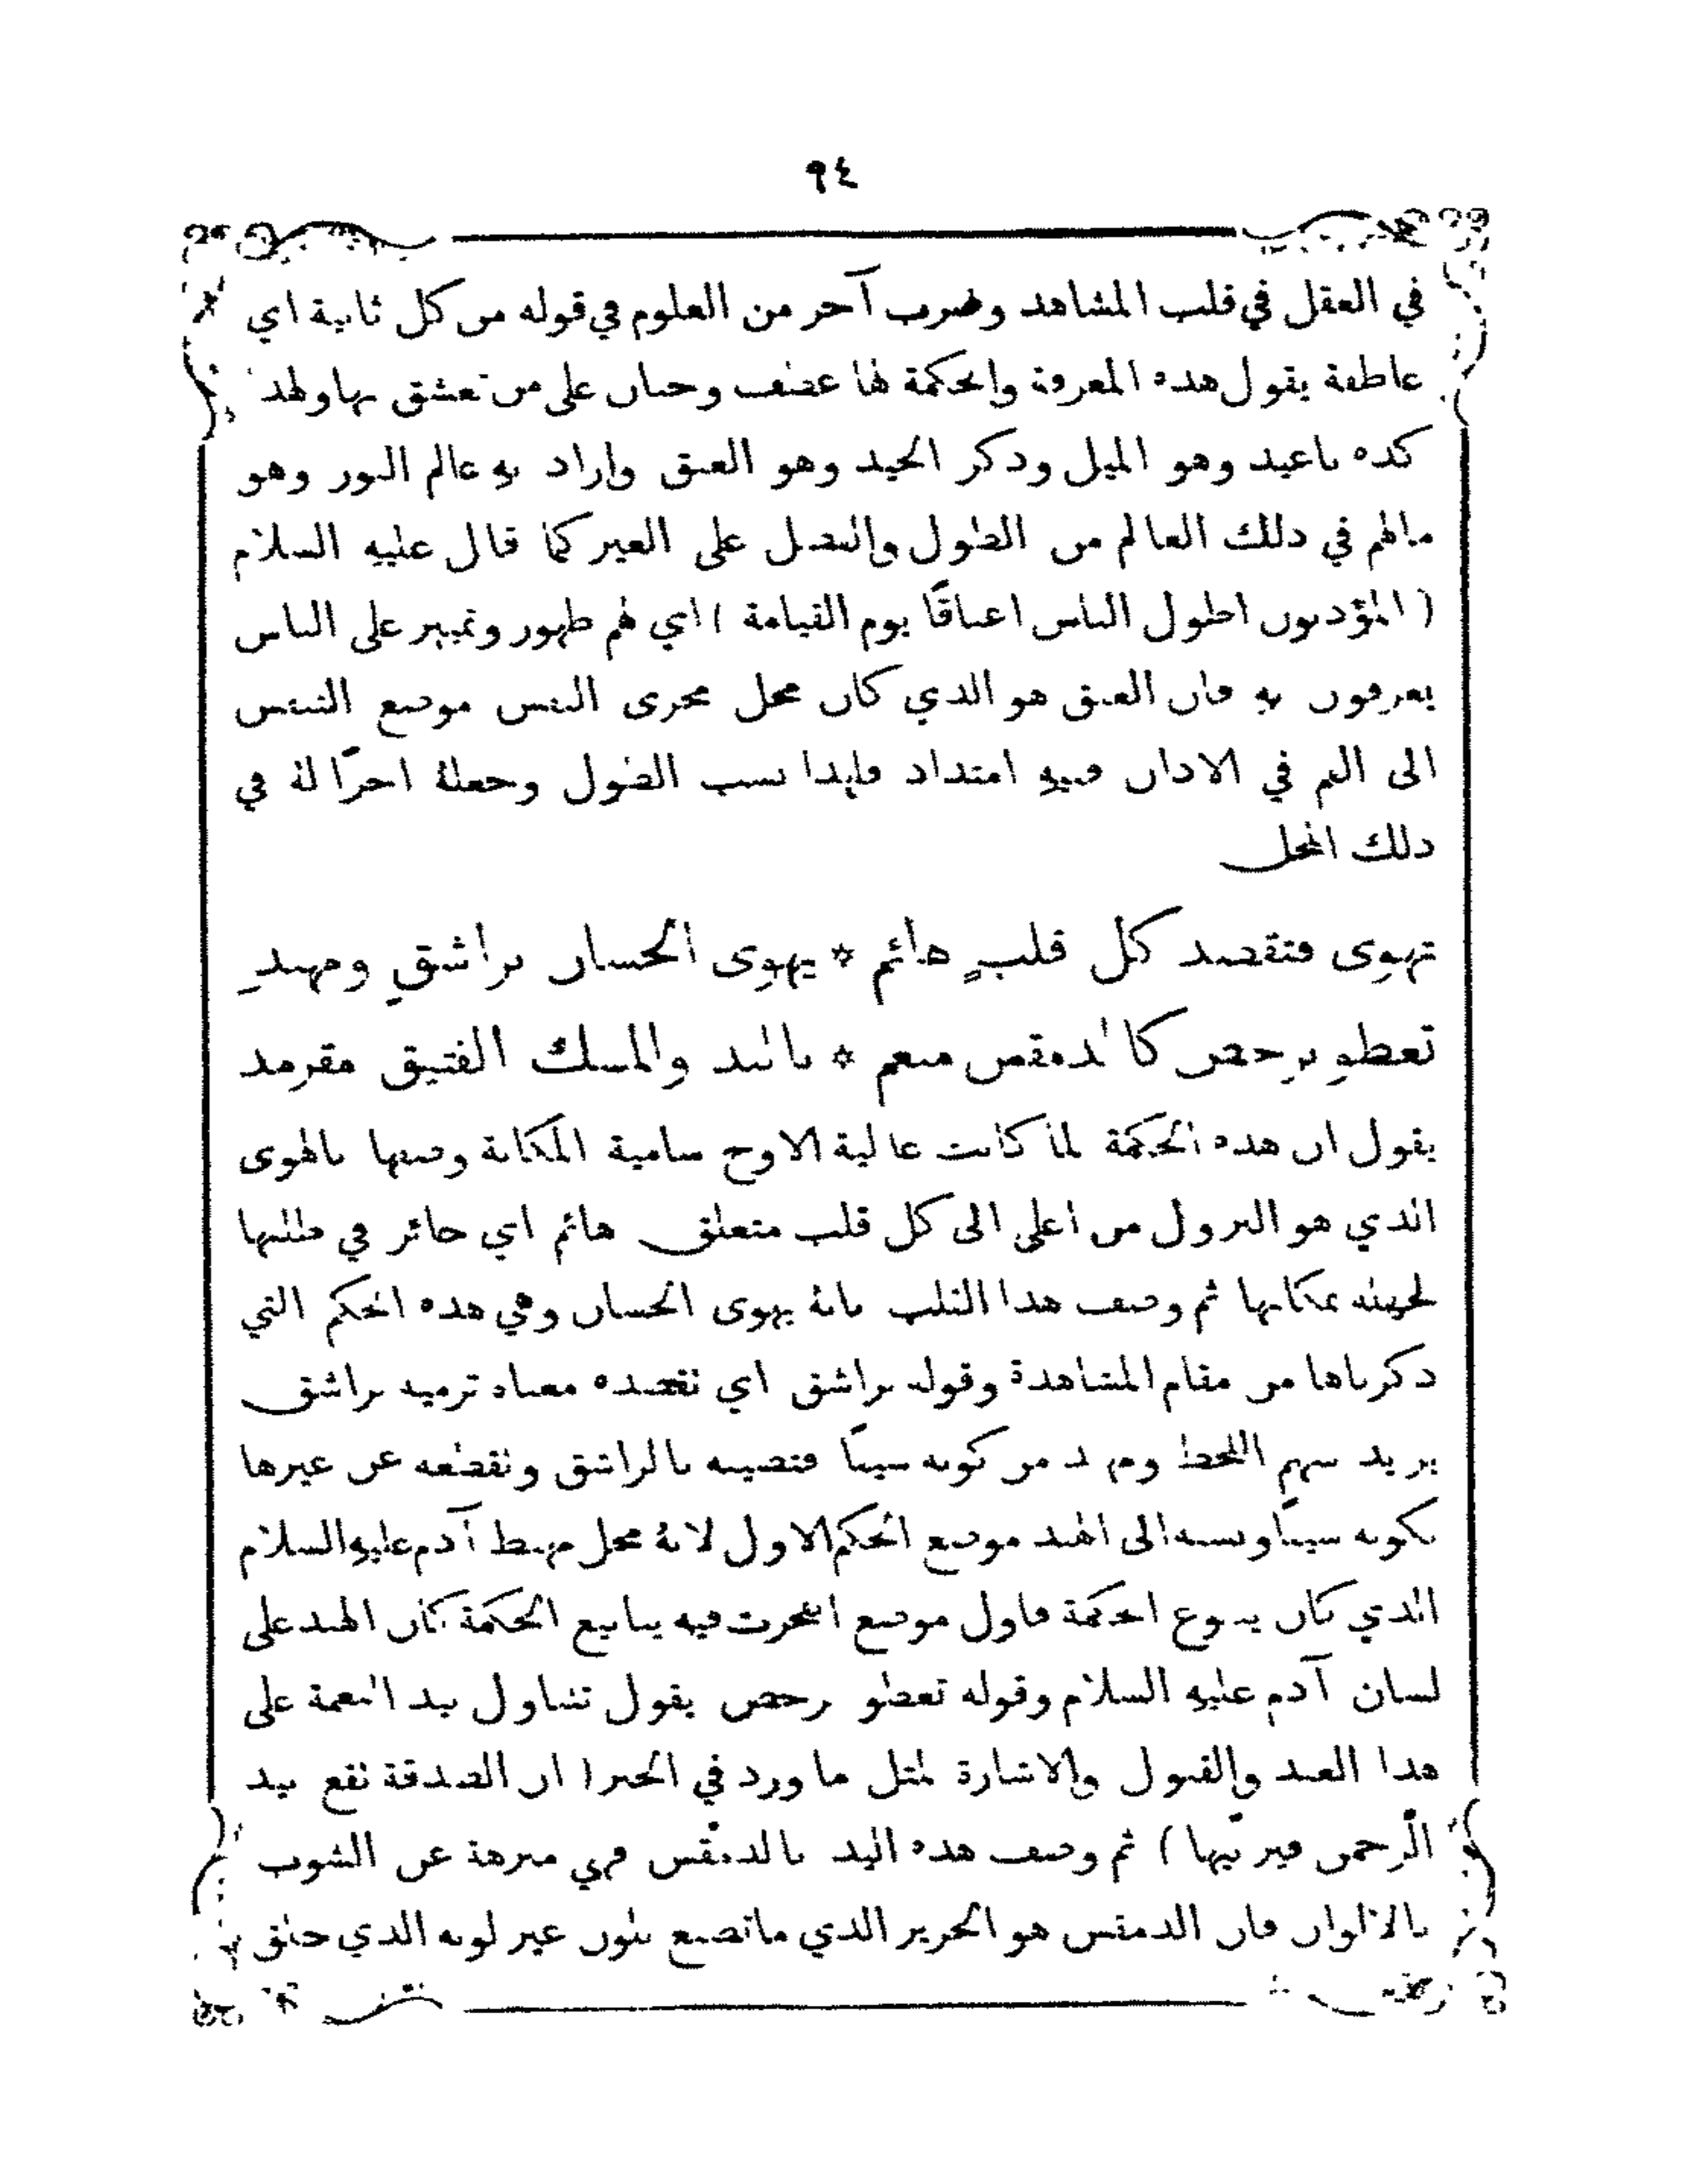 ٩٤
في العقل في قلب المشاهد وضرب آخر من العلوم في قوله من كل ثانية اي
عاطفة يقول هذه المعرفة والحكمة لها عطف وحنان على من تعشق بها ولهذا
كده باغيد وهو الميل وذكر الجيد وهو العنق واراد به عالم النور وهو
مالهم في ذلك العالم من الطول والفضل على الغير كما قال عليه السلام
( المؤذنون اطول الناس اعناقًا يوم القيامة ) اي لهم ظهور وتمييز على الناس
يعرفون به فان العنق هو الذي كان محل مجرى النفس موضع التنفس
الى الفم في الاذان ففيه امتداد فلهذا نسب الطول وجعله اجرًا له في
ذلك المحل
تهوى فتقصد كل قلبٍ هائم * يهوى الحسان براشقٍ ومهندِ
تعطو برخص كالدمقس منعم * بالند والمسك الفتيق مقرمد
يقول ان هذه الحكمة لما كانت عالية الاوج سامية المكانة وصفها بالهوى
الذي هو النزول من اعلى الى كل قلب متعلق هائم اي حائر في طلبها
لجهله بمكانها ثم وصف هذا القلب بانه يهوى الحسان وهي هذه الحكم التي
ذكرناها من مقام المشاهدة وقوله براشق اي تقصده معناه ترميه براشق
يريد سهم اللحظ ومهند من كونه سيفًا فتصيبه بالراشق وتقطعه عن غيرها
بكونه سيفًا ونسبه الى الهند موضع الحكم الاول لانه محل مهبط آدم عليه السلام
الذي كان ينبوع الحكمة فاول موضع انفجرت فيه ينابيع الحكمة كان الهند على
لسان آدم عليه السلام وقوله تعطو برخص يقول تتناول بيد النعمة على
هذا العبد والقبول والاشارة لمثل ما ورد في الخبر ( ان الصدقة تقع بيد
الرّحمن فيربّيها ) ثم وصف هذه اليد بالدمقس فهي منزهة عن الشوب
بالالوان فان الدمقس هو الحرير الذي ماتصبغ بلون غير لونه الذي خلق